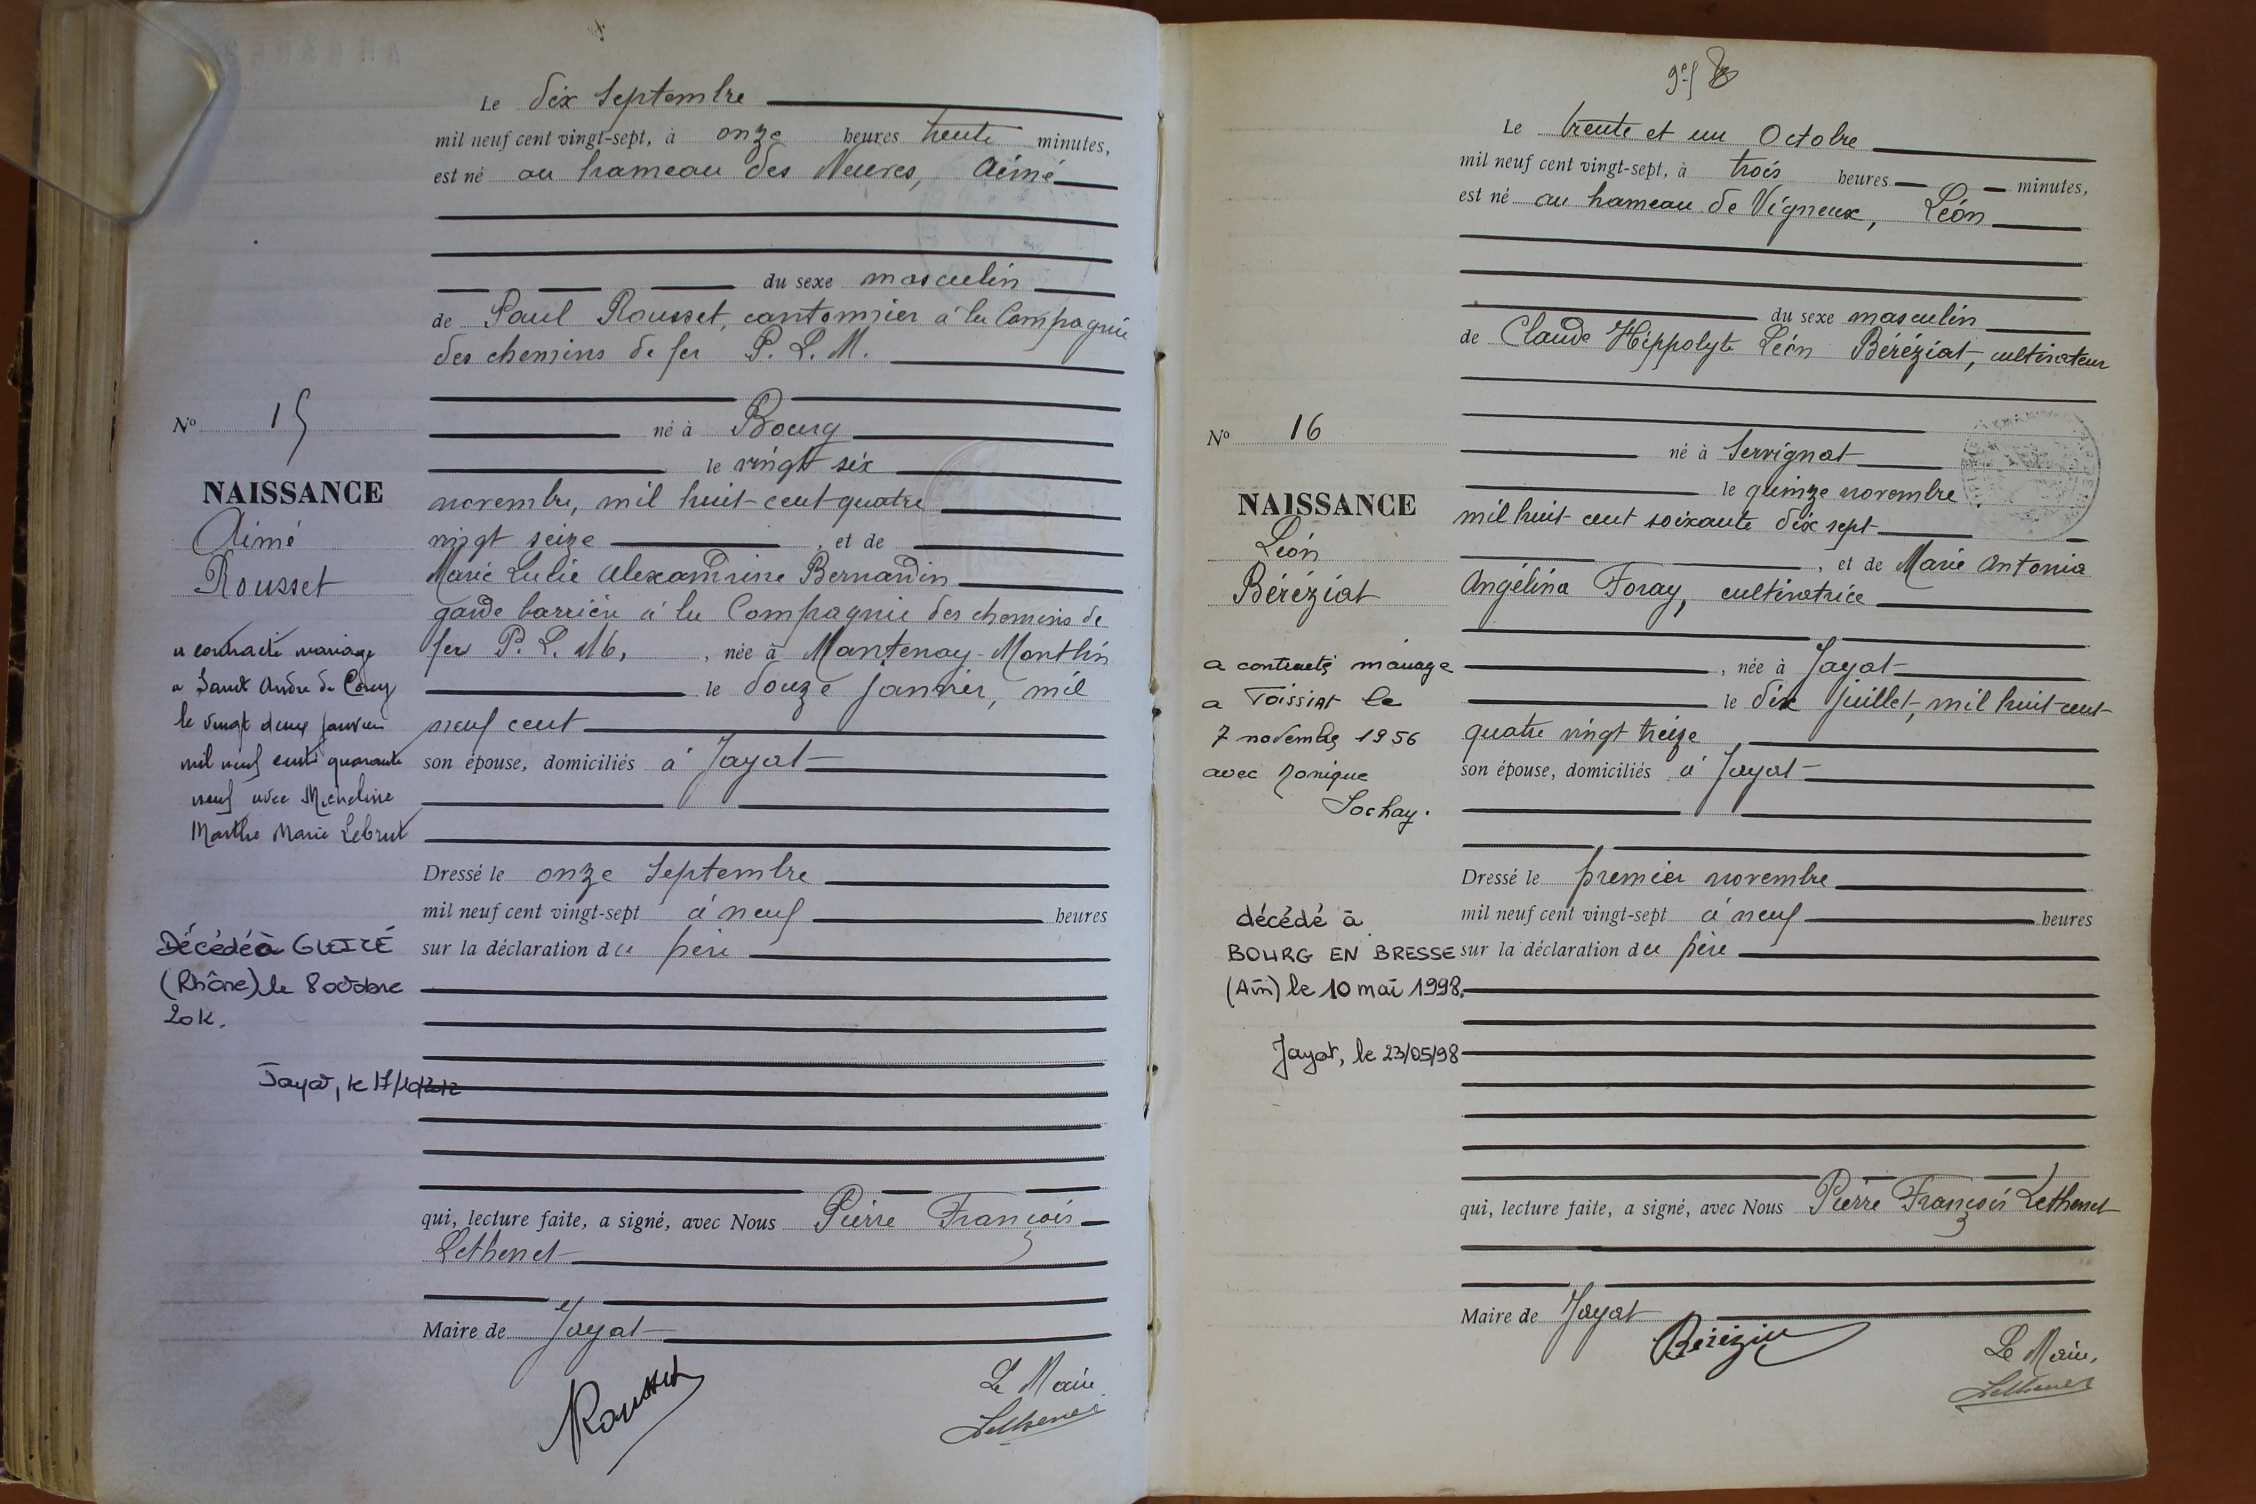 Le dix Septembre
mil neuf cent vingt-sept, à onze heures trente minutes,
est né au hameau des Neuves, Aimé
du sexe masculin
de Paul Rousset, cantonnier à la Compagnie
des chemins de fer P. L. M.
né à Bourg
le vingt six
novembre, mil huit cent quatre
vingt seize , et de
Marie Lulie Alexandrine Bernardin
garde barrière à la Compagnie des chemins de
fer P. L. M., , née à Mantenay-Montlin
le douze janvier, mil
neuf cent
son épouse, domiciliés à Jayat
Dressé le onze Septembre
mil neuf cent vingt-sept à neuf heures
sur la déclaration du père
qui, lecture faite, a signé, avec Nous Pierre François
Lethenet
Maire de Jayat
Rousset
Le Maire
Lethenet
No 15
NAISSANCE
Aimé
Rousset
a contracté mariage
a Saint André de Corcy
le vingt deux janvier
mil neuf cent quarante
neuf avec Micheline
Marthe Marie Lebrut
Décédé à GLEIZÉ
(Rhône) le 8 octobre
Jayat, le 17/10/2012
Le trente et un Octobre
mil neuf cent vingt-sept, à trois heures minutes,
est né au hameau de Vigneux, Léon
du sexe masculin
de Claude Hippolyte Léon Béréziat, cultivateur
né à Servignat
le quinze novembre
mil huit cent soixante dix sept
, et de Marie Antonia
Angélina Foray, cultivatrice
, née à Jayat
le dix juillet, mil huit cent
quatre vingt treize
son épouse, domiciliés à Jayat
Dressé le premier novembre
mil neuf cent vingt-sept à neuf heures
sur la déclaration du père
qui, lecture faite, a signé, avec Nous Pierre François Lethenet
Maire de Jayat
Béréziat
Le Maire,
Lethenet
No 16
NAISSANCE
Léon
Béréziat
a contracté mariage
a Toissiat le
7 novembre 1956
avec Monique
Sochay.
décédé à
BOURG EN BRESSE
(Ain) le 10 mai 1998.
Jayat, le 23/05/98